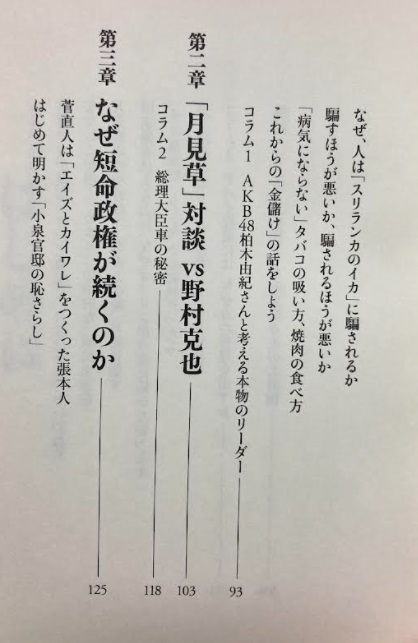 なぜ、人は「スリランカのイカ」に騙されるか
騙すほうが悪いか、騙されるほうが悪いか
「病気にならない」タバコの吸い方、焼肉の食べ方
これからの「金儲け」の話をしよう
コラム1 AKB48柏木由紀さんと考える本物のリーダー 93
第二章 「月見草」対談 vs 野村克也 103
コラム2 総理大臣車の秘密 118
第三章 なぜ短命政権が続くのか 125
菅直人は「エイズとカイワレ」をつくった張本人
はじめて明かす「小泉官邸の恥さらし」